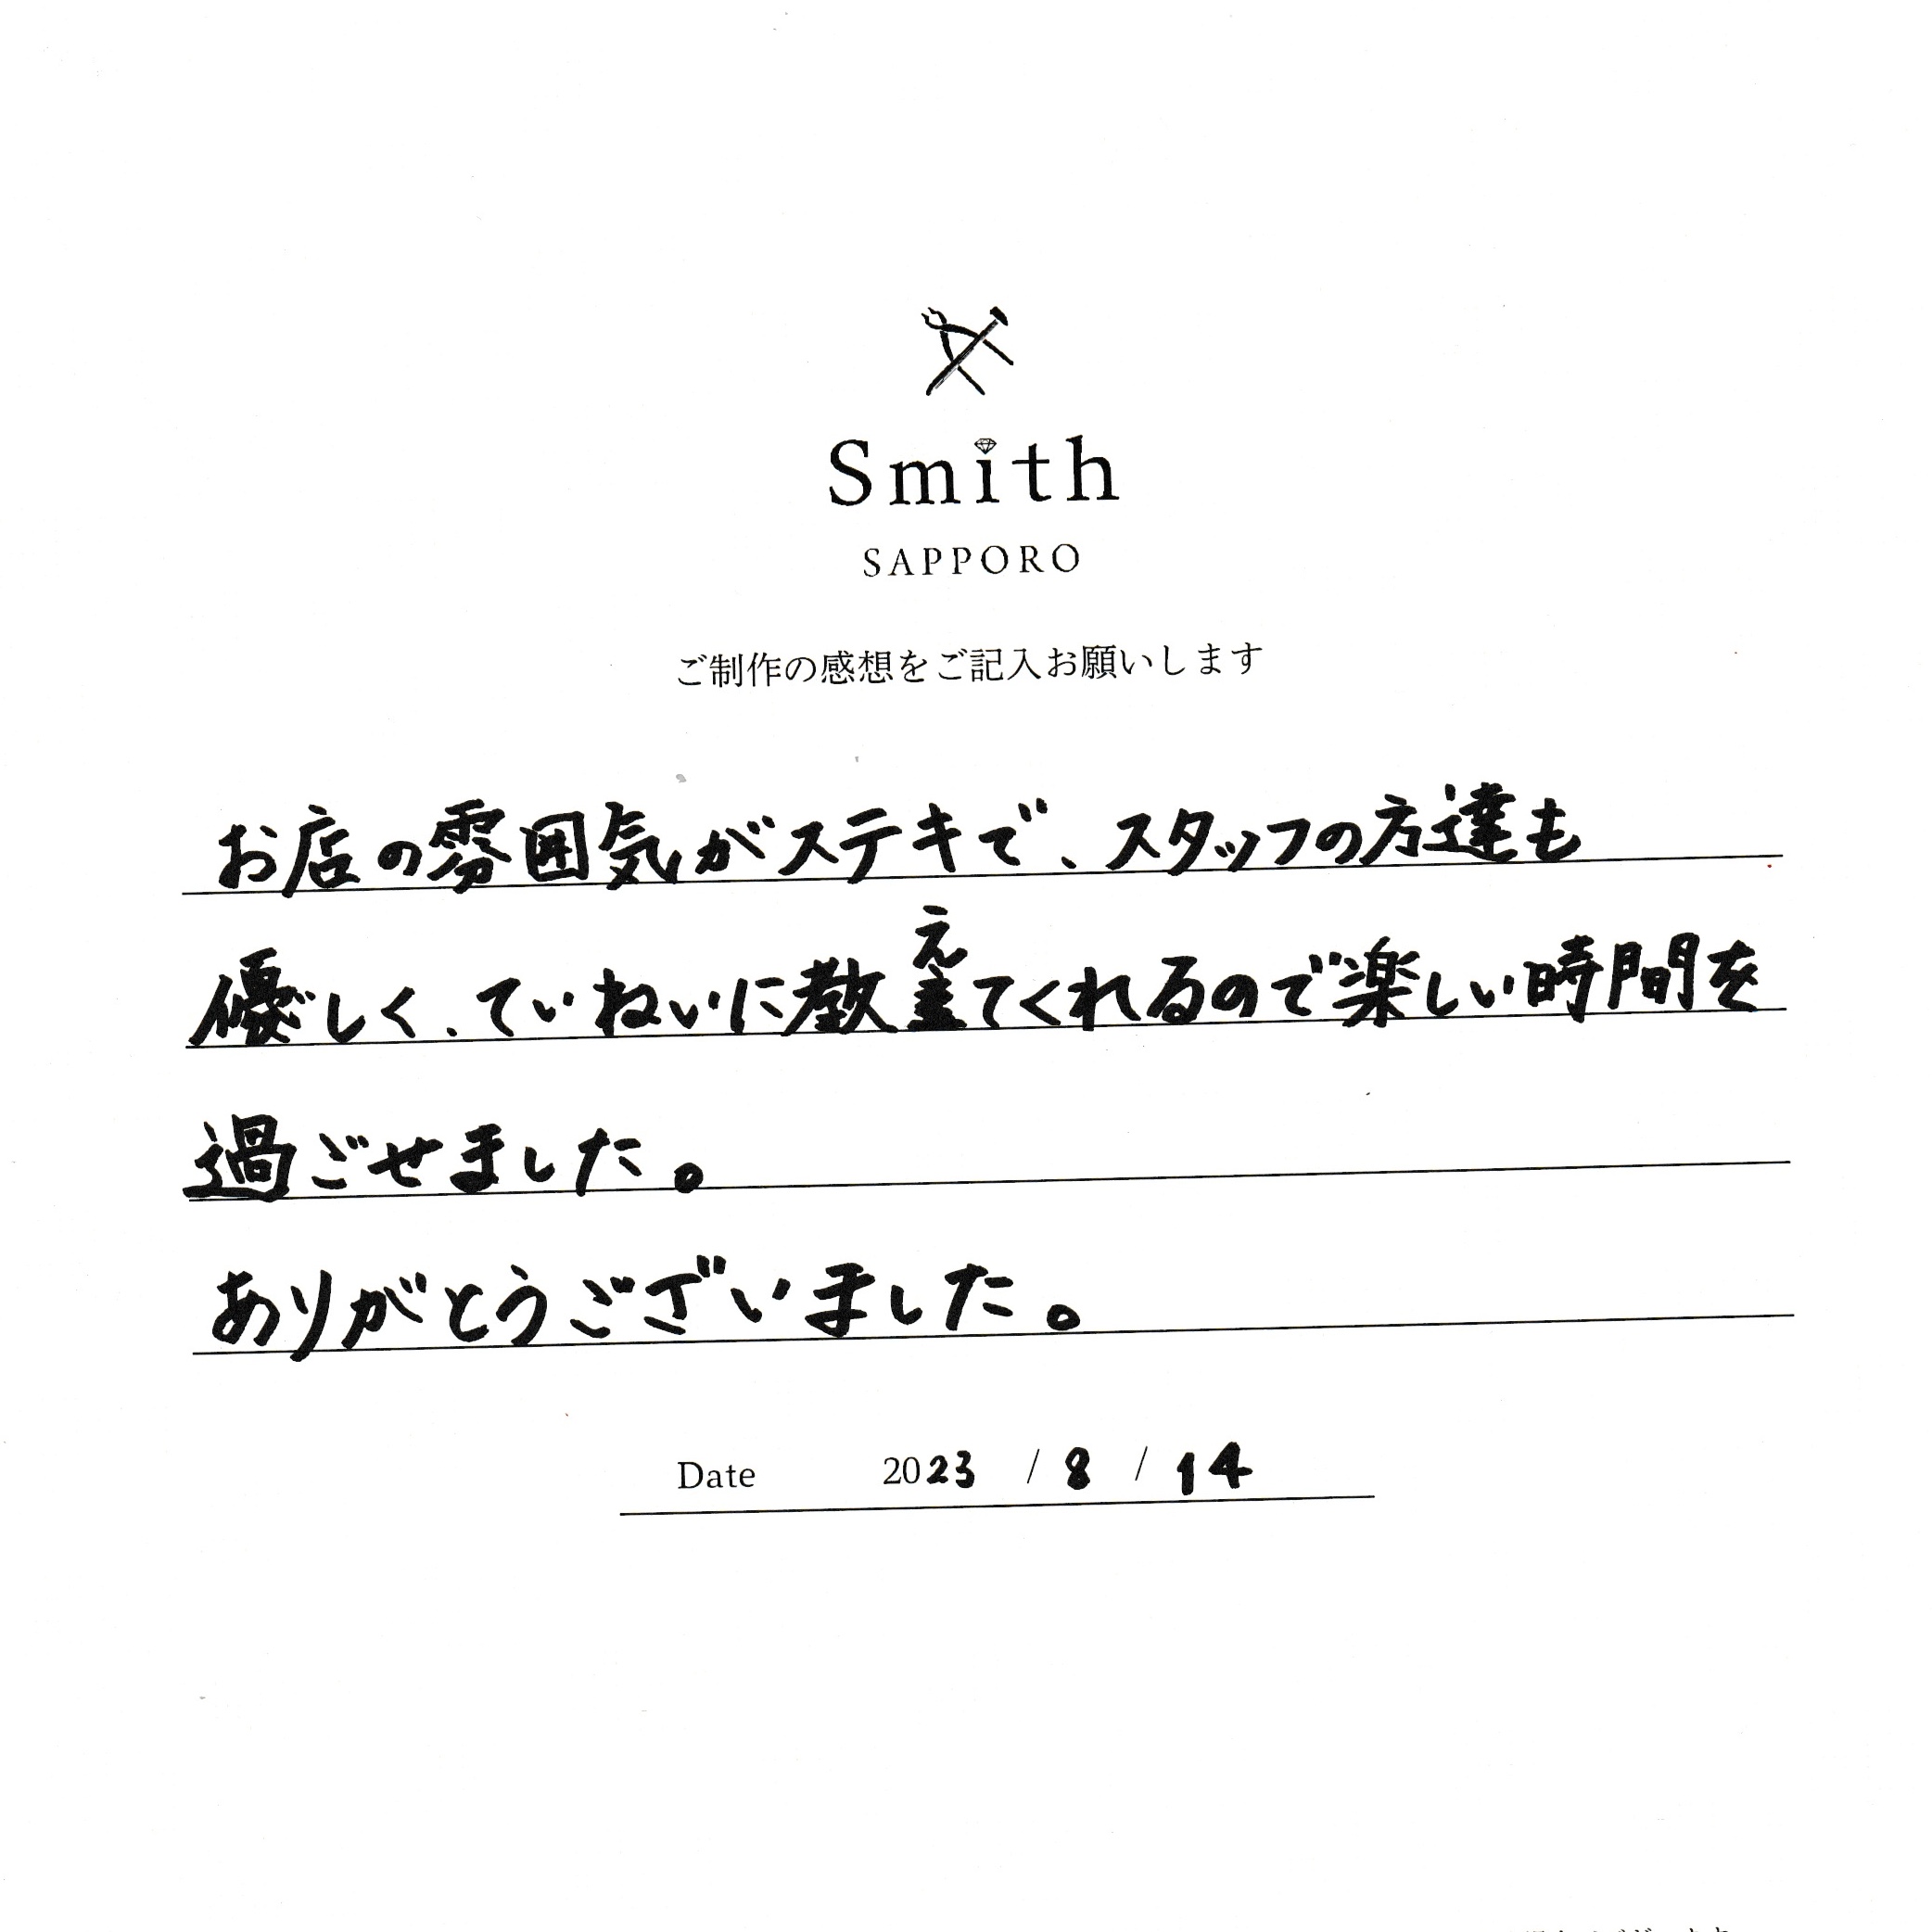 Smith
SAPPORO
ご制作の感想をご記入お願いします
お店の雰囲気がステキで、スタッフの方達も
優しく、ていねいに教えてくれるので楽しい時間を
過ごせました。
ありがとうございました。
Date 2023 / 8 / 14